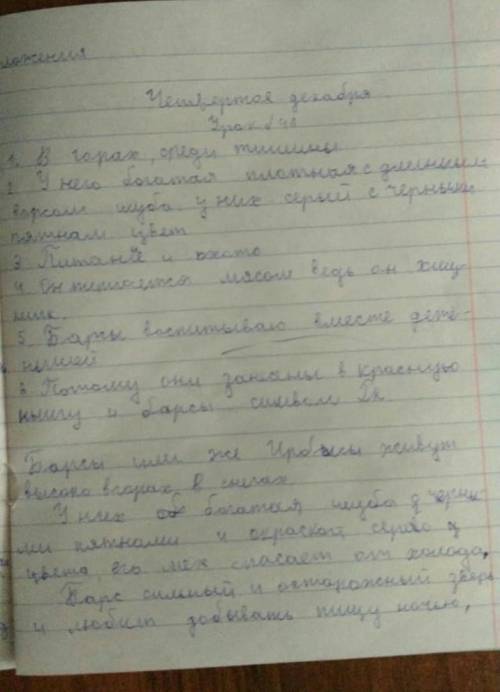 ложения
Четвертое декабря
Урок №40
1. В горах, среди тишины
2. У него богатая плотная с длинным
ворсом шуба у них серый с черными
пятнам цвет
3. Питание и охота
4. Он питается мясом ведь он хищ
ник.
5. Барсы воспитываю вместе дете-
нышей
6. Потому они занесены в красную
книгу и барсы символ
Барсы или же Ирбисы живут
высоко в горах в снегах
У них богатая шуба с черны
ми пятнами и окраской серого
цвета, его мех спасает от холода,
Барс сильный и осторожный зверь
и любит добывать пищу ночью,